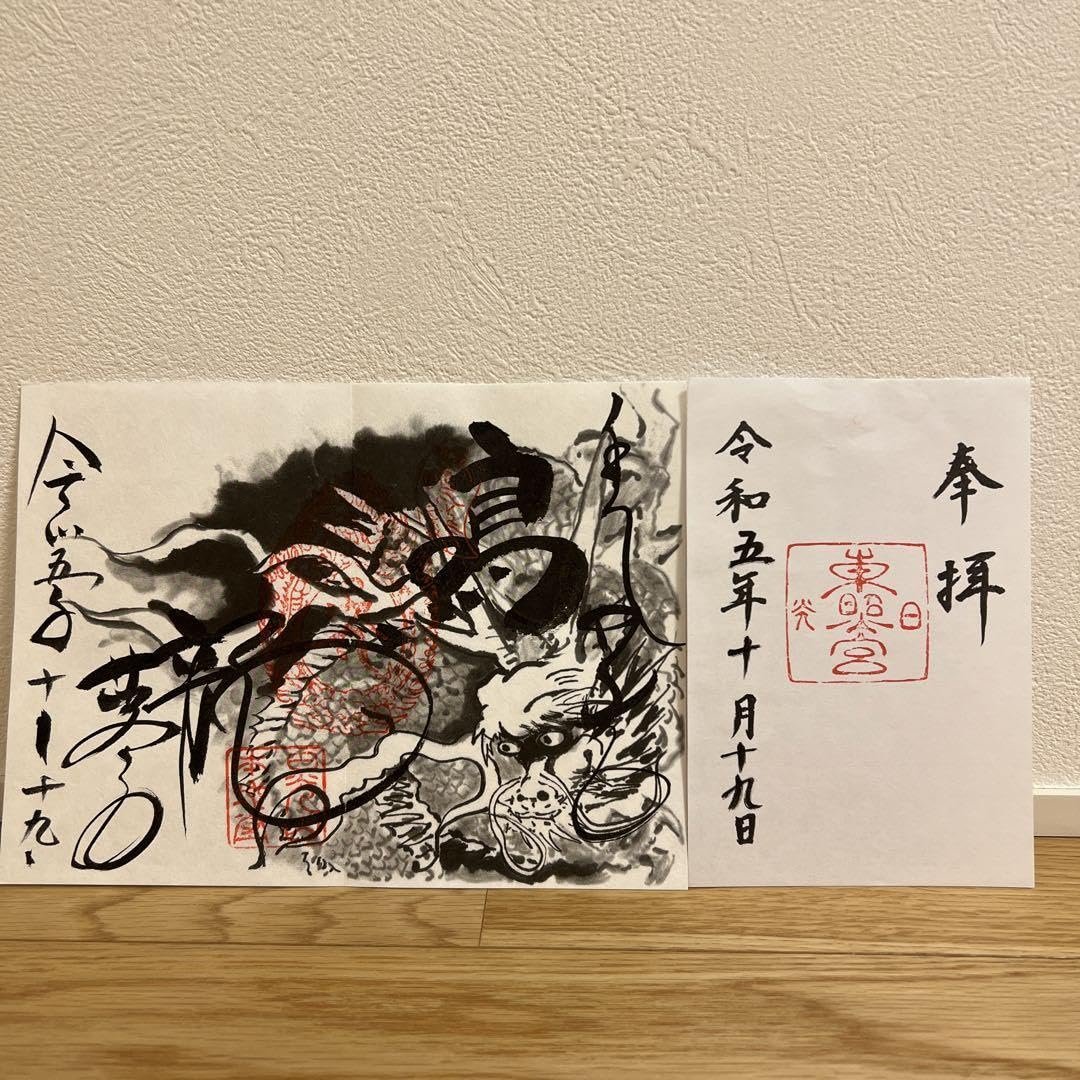 奉拝
日光
東照宮
令和五年十月十九日
鳴龍
令和五年十月十九日